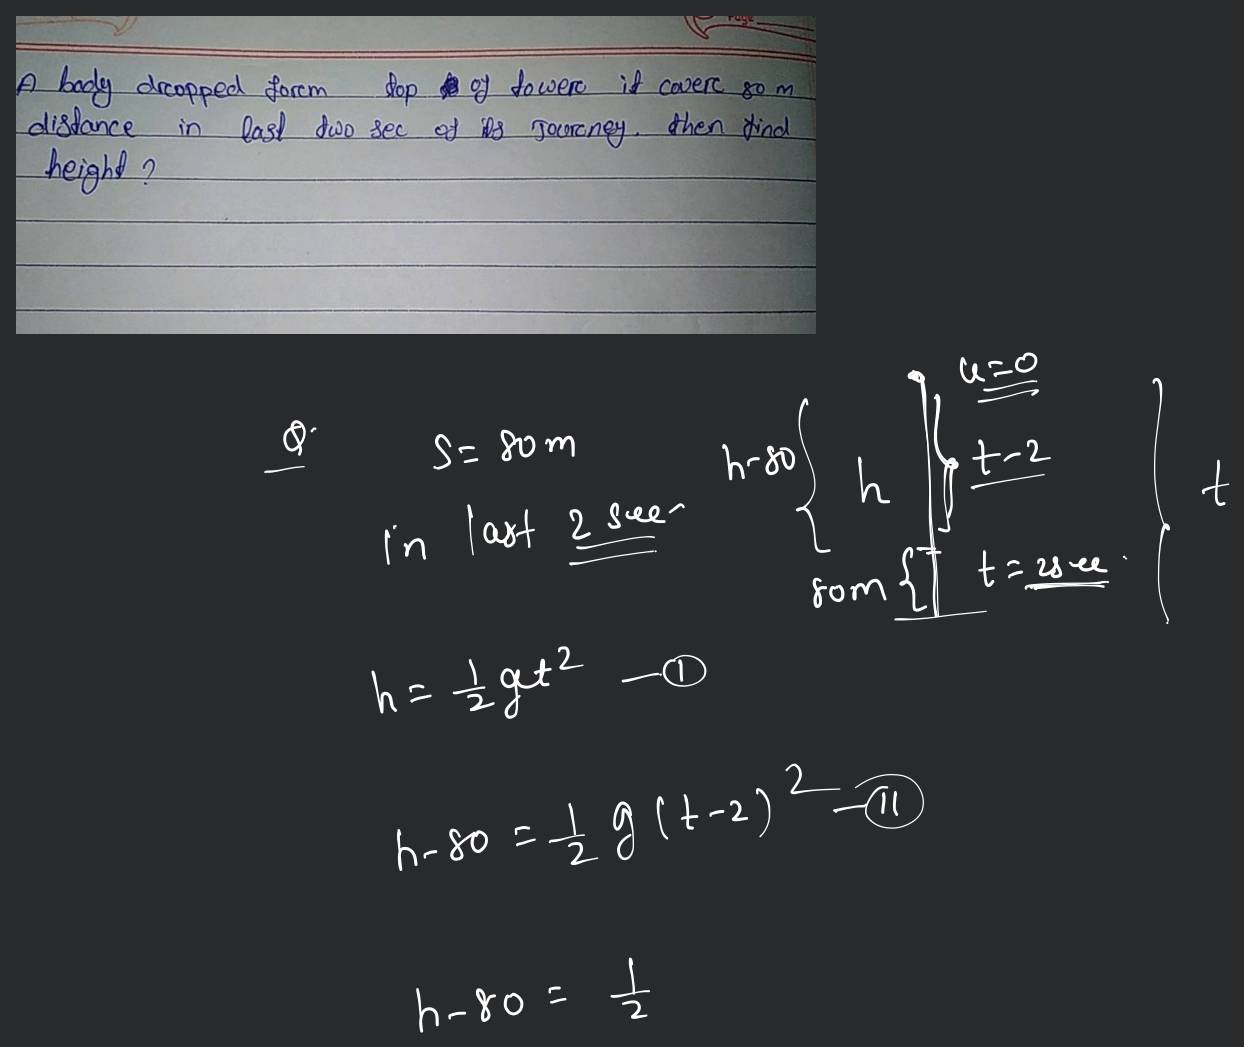 Page
A body drcopped forcm top of towerc it coverc 80 m
distance in last two sec of its Jourcney. then find
height ?
Q.
S = 80 m
in last 2 sec
u=0
h-80
h
t-2
t
80m
t = 2sec
h = 1/2 gt² —①
h-80 = 1/2 g (t-2)² —⑪
h-80 = 1/2